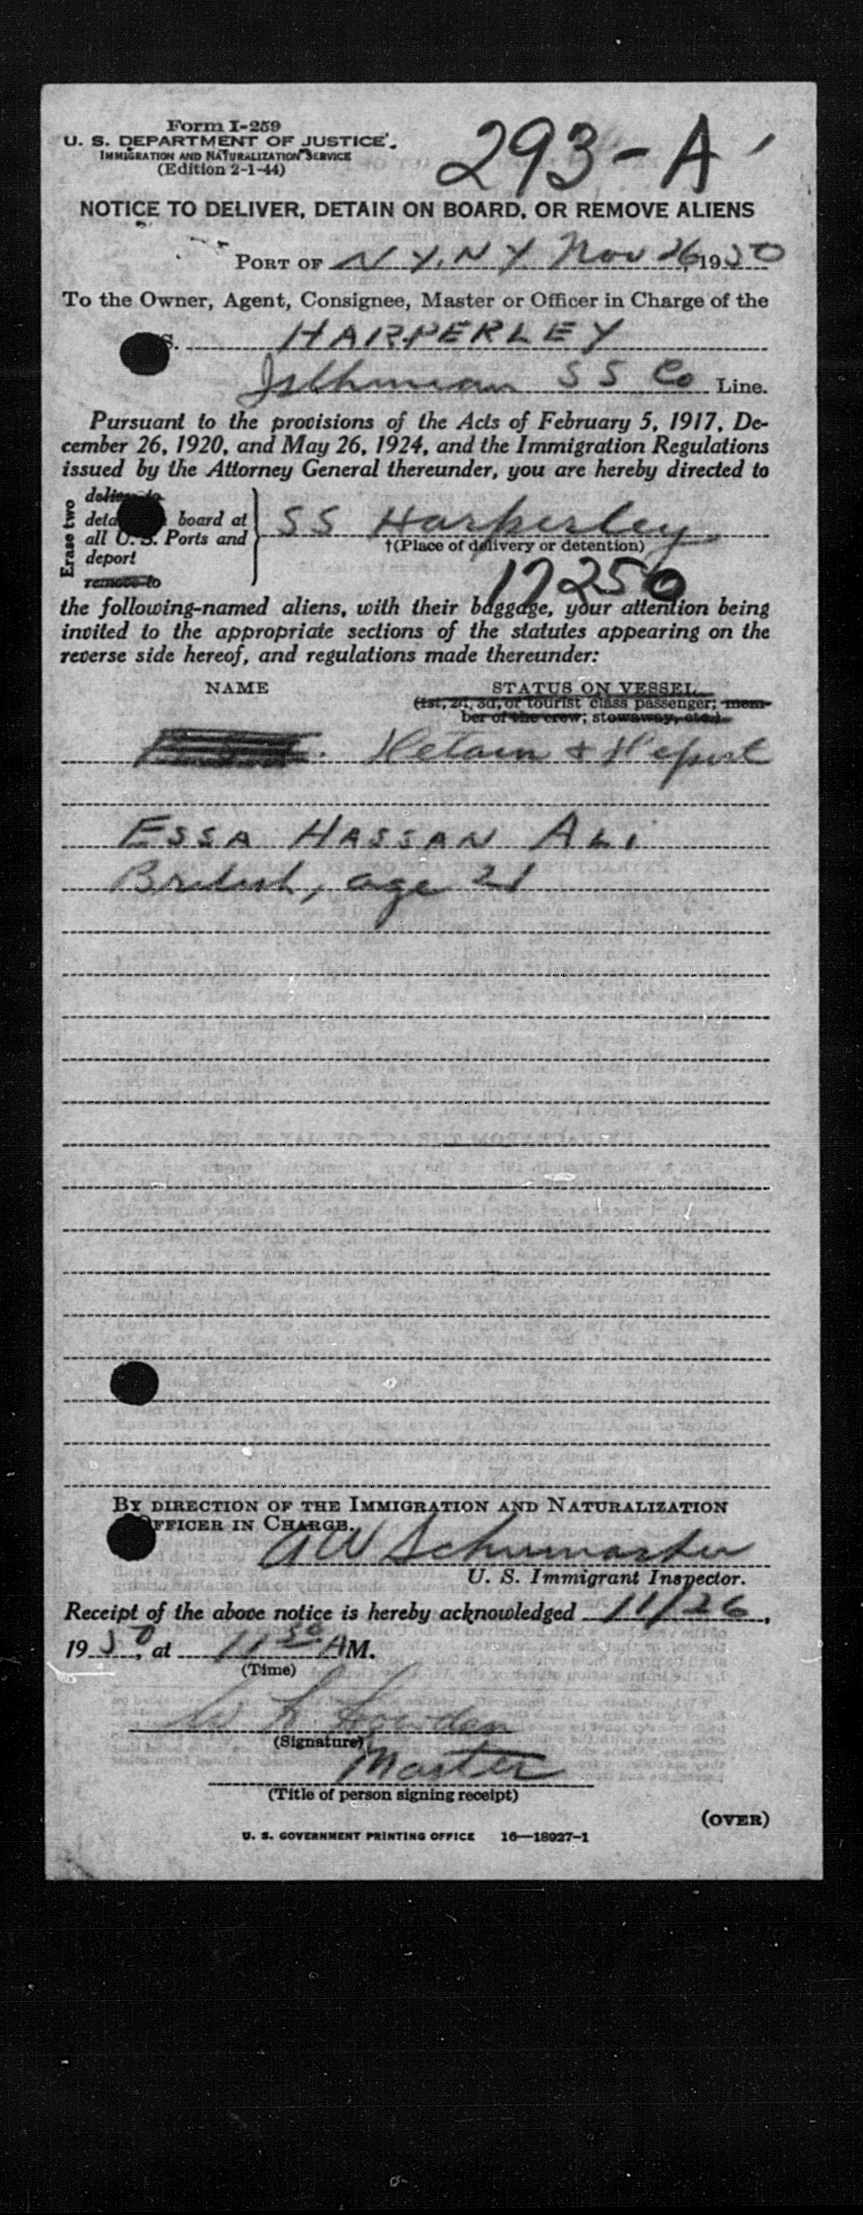 Form I-259
U. S. DEPARTMENT OF JUSTICE
IMMIGRATION AND NATURALIZATION SERVICE
(Edition 2-1-44)
293-A
NOTICE TO DELIVER, DETAIN ON BOARD, OR REMOVE ALIENS
PORT OF N Y, N Y. Nov 26, 1950
To the Owner, Agent, Consignee, Master or Officer in Charge of the
S. HARPERLEY
Isthmian SS Co Line.
Pursuant to the provisions of the Acts of February 5, 1917, De-
cember 26, 1920, and May 26, 1924, and the Immigration Regulations
issued by the Attorney General thereunder, you are hereby directed to
Erase two
deliver to
board at
all U. S. Ports and
deport
remove to
SS Harperley
†(Place of delivery or detention)
17250
the following-named aliens, with their baggage, your attention being
invited to the appropriate sections of the statutes appearing on the
reverse side hereof, and regulations made thereunder:
NAME STATUS ON VESSEL
(1st, 2d, 3d, or tourist class passenger; mem-
ber of the crew; stowaway, etc.)
Detain & Deport
ESSA HASSAN ALI
British, age 21
BY DIRECTION OF THE IMMIGRATION AND NATURALIZATION
OFFICER IN CHARGE.
A W Schumaster
U. S. Immigrant Inspector.
Receipt of the above notice is hereby acknowledged 11/26,
1950, at 11 50 AM.
(Time)
W L Howden
(Signature)
Master
(Title of person signing receipt)
(OVER)
U. S. GOVERNMENT PRINTING OFFICE 16—18927-1